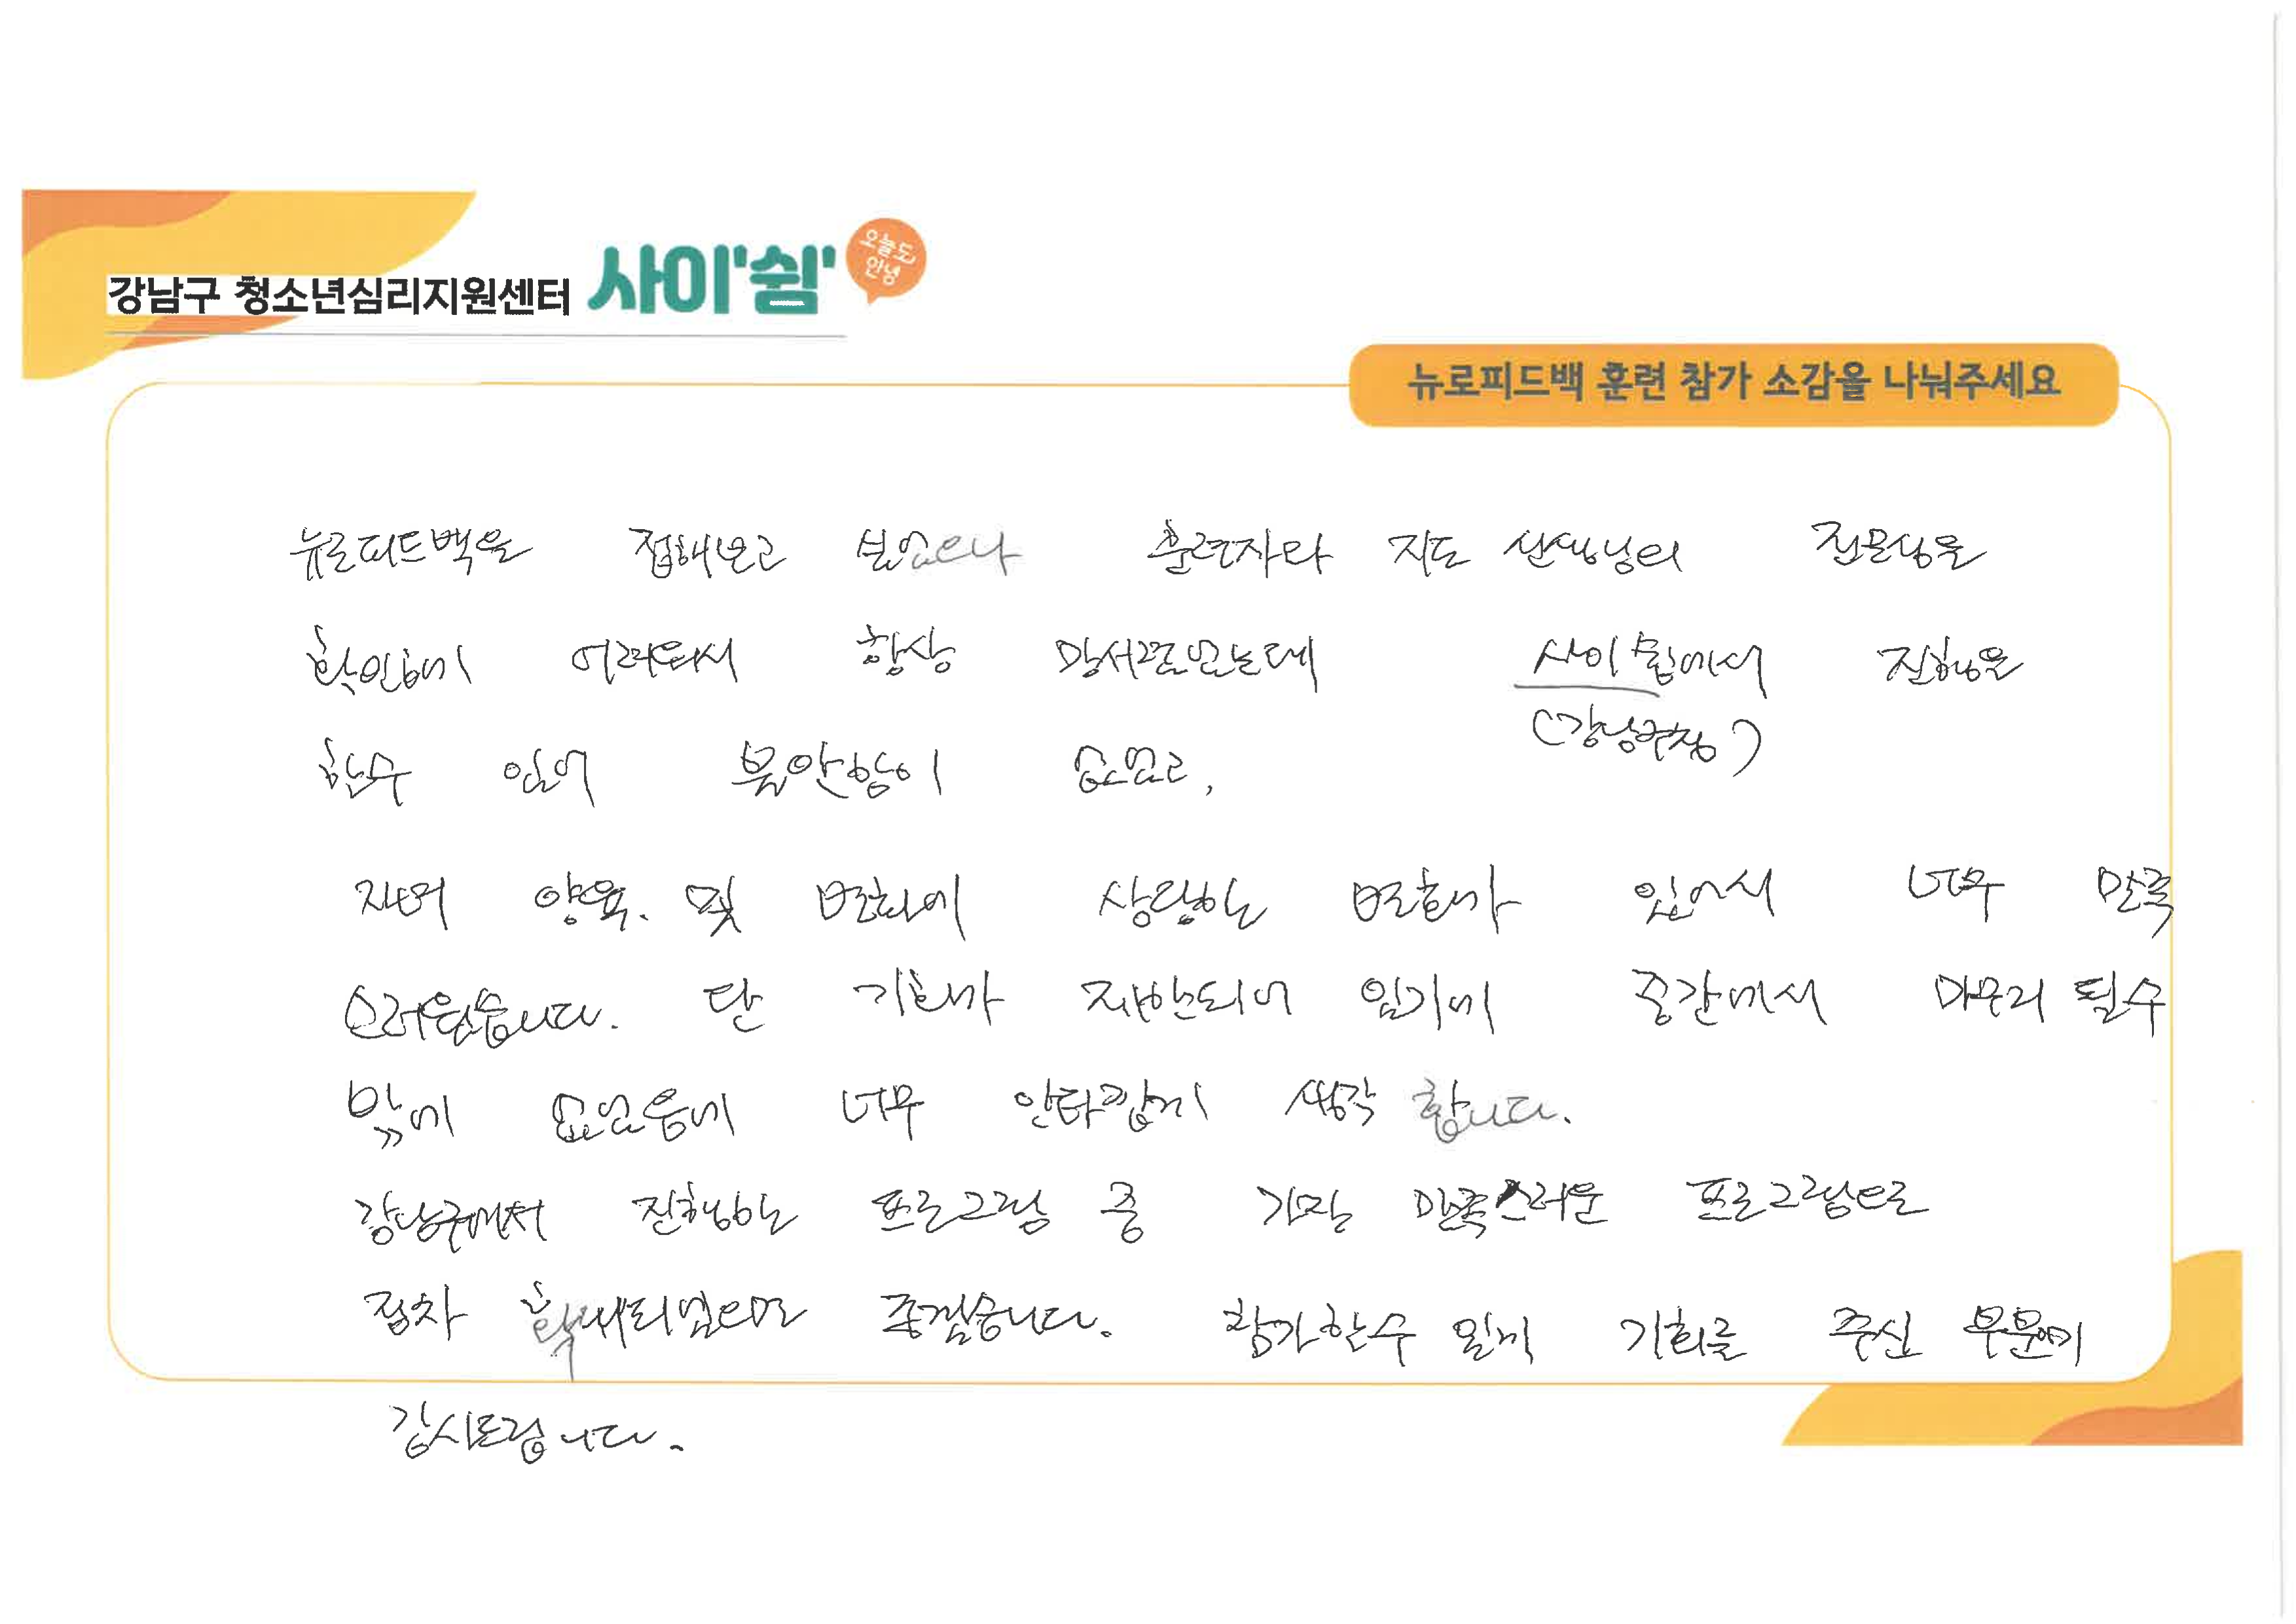 강남구 청소년심리지원센터 사이'쉼' 오늘도 안녕
뉴로피드백 훈련 참가 소감을 나눠주세요
뉴로피드백을 접해보고 싶었으나 훈련자와 지도 선생님의 전문성을
확인하기 어려워서 항상 망서렸었는데 사이쉼에서 진행을
(강남구청)
할수 있어 불안함이 없었고,
자녀 양육. 및 변화에 상당하는 변화가 있어서 너무 만족
스러웠습니다. 단 기회가 제한되어 있기에 중간에서 마무리 될수
밖에 없었음에 너무 안타깝게 생각 합니다.
강남구에서 진행하는 프로그램 중 가장 만족스러운 프로그램으로
점차 확대되었으면 좋겠습니다. 참가할수 있게 기회를 주신 부분에
감사드립니다.